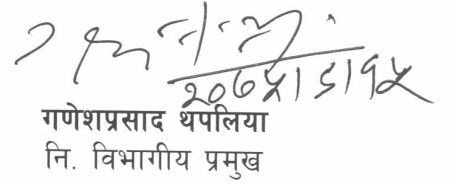 २०७५।८।१५
गणेशप्रसाद थपलिया
नि. विभागीय प्रमुख